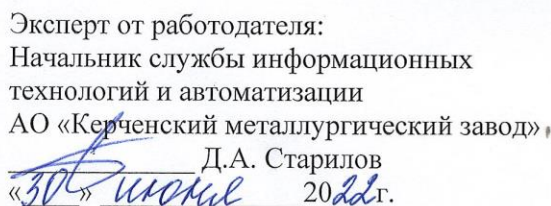 Эксперт от работодателя:
Начальник службы информационных
технологий и автоматизации
АО «Керченский металлургический завод»
Д.А. Старилов
«30» июня 2022г.